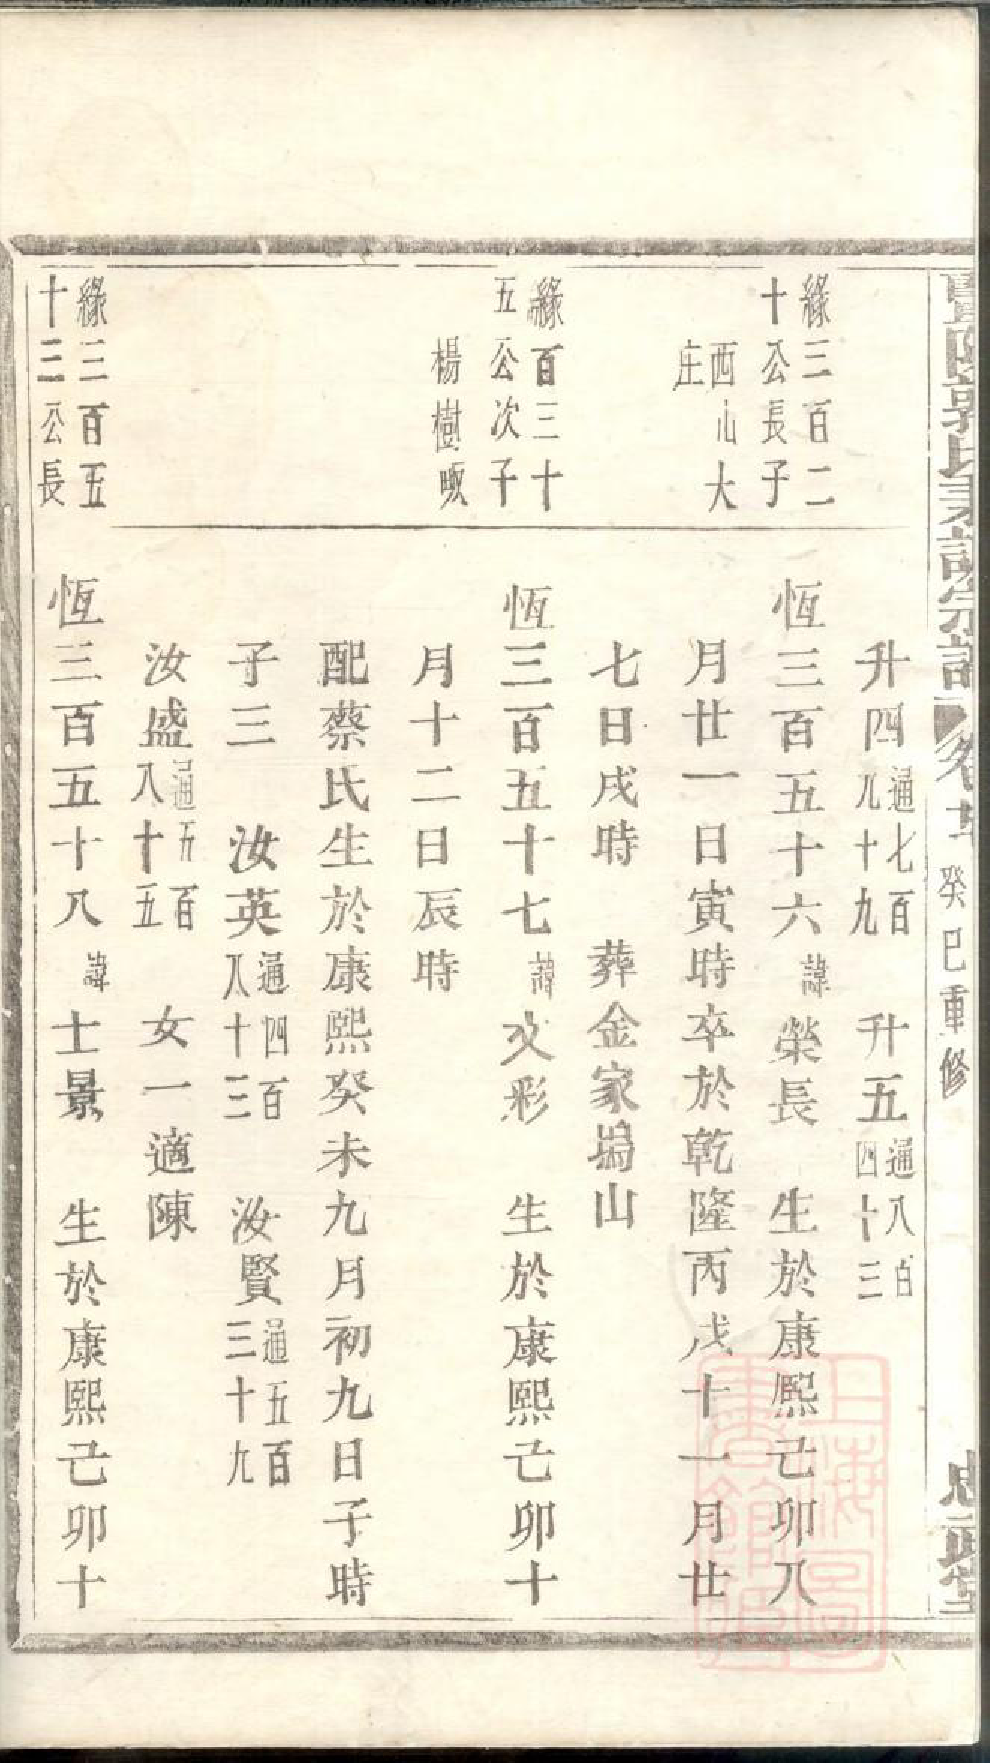 暨陽郭氏宗譜 卷 癸巳重修 忠武堂
升四通七百九十九 升五通八百四十三
緣三百二十公長子 西山大庄
恆三百五十六諱榮長 生於康熙己卯八
月廿一日寅時卒於乾隆丙戌十一月廿
七日戌時 葬金家塢山
緣百三十五公次子 楊樹㘰
恆三百五十七諱文彩 生於康熙己卯十
月十二日辰時
配蔡氏生於康熙癸未九月初九日子時
子三 汝英通四百八十三 汝賢通五百三十九
汝盛通五百八十五 女一適陳
緣三百五十三公長
恆三百五十八諱士景 生於康熙己卯十
上海圖書館藏